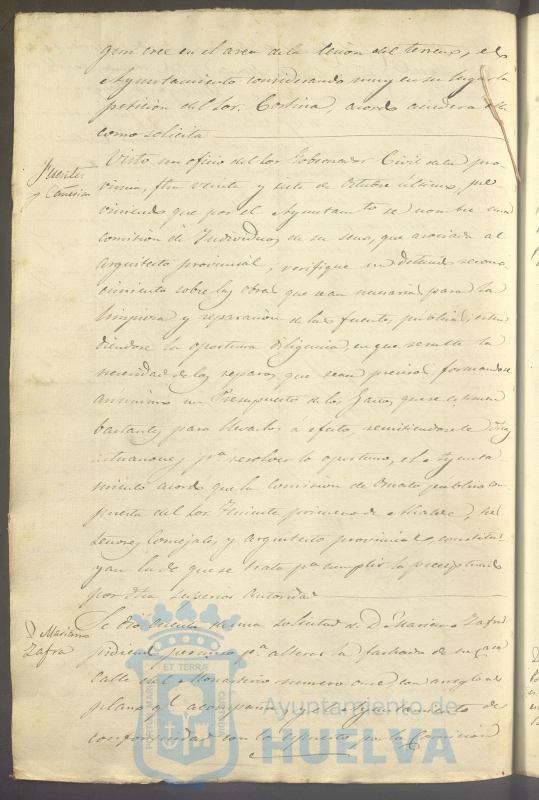 que cree en el area de la linea del terreno, y el
Ayuntamiento considerando muy en su lugar la
peticion del Sor. Cortina, acordó acceder á ella
como solicita
Fuentes
y Cañerias
Visto un oficio del Sor Gobernador Civil de la pro
vincia, fha veinte y siete de Octubre último, pre
viniendo que por el Ayuntamto se nombre una
comision de Individuos de su seno, que asociada al
arquitecto provincial, verifique un detenido recono
cimiento sobre las obras que sean necesarias para la
limpieza y reparacion de las fuentes publicas, esten
diendose la oportuna diligencia, en que resulte la
necesidad de los reparos que sean precisos, formandose
asimismo un Presupuesto de los gastos, que se estimen
bastantes para llevarlos a efecto, remitiendosele
actuaciones pa. resolver lo oportuno, el Ayunta
miento acordó que la comision de Ornato publico com
puesta del Sor. Teniente primero de Alcalde,
Señores Concejales y arquitecto provincial, constitu
yan la de que se trata pa. cumplir lo preceptuado
por dha Superior autoridad
D. Mariano
Zafra
Se dió cuenta de una solicitud de D. Mariano Zafra
pidiendo permiso pa. alterar la fachada de su casa
calle del Monasterio numero once, con arreglo al
plano ql. acompaña, y el Ayuntamiento de
conformidad con lo espuesto por la Comision
PORTUS MARIS
ET TERRÆ
CUSTODIA
Ayuntamiento de
HUELVA